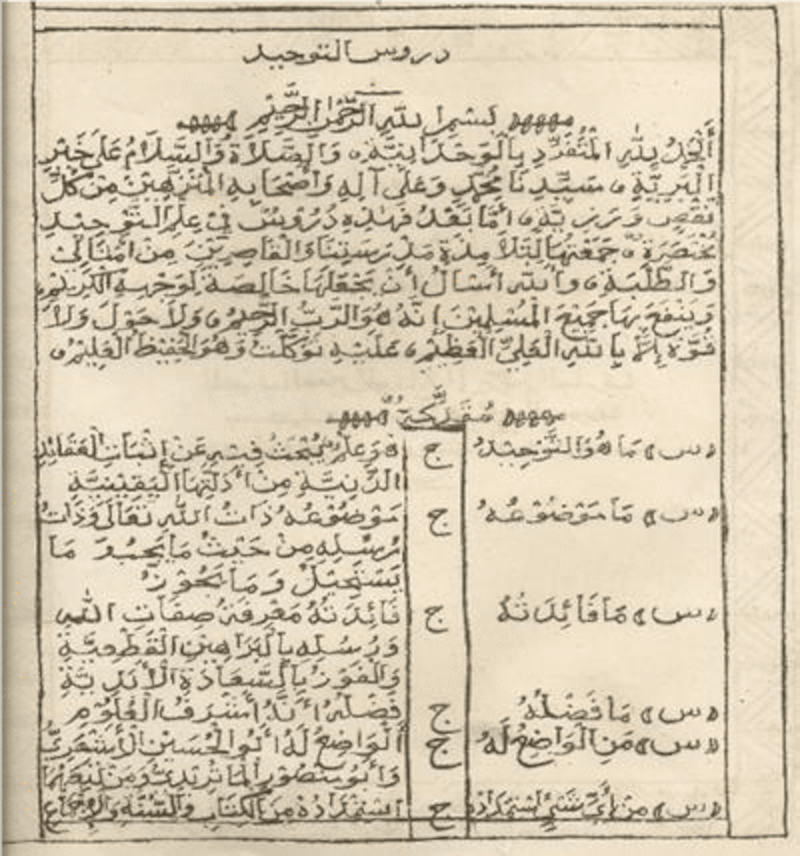 دروس التوحيد
بسم الله الرحمن الرحيم
أَلْحَمْدُ لِلَّهِ الْمُتَفَرِّدِ بِالْوَحْدَانِيَّةِ، وَالصَّلَاةُ وَالسَّلَامُ عَلَى خَيْرِ
الْبَرِيَّةِ، سَيِّدِنَا مُحَمَّدٍ وَعَلَى آلِهِ وَأَصْحَابِهِ الْمُنَزَّهِينَ مِنْ كُلِّ
نَقْصٍ وَرَزِيَّةٍ، أَمَّا بَعْدُ فَهٰذِهِ دُرُوسٌ فِي عِلْمِ التَّوْحِيدِ
مُخْتَصَرَةٌ، جَمَعْتُهَا لِتَلَامِذَةِ مَدْرَسَتِنَا وَالْقَاصِرِينَ مِنْ أَمْثَالِي
وَالطَّلَبَةِ، وَاللَّهَ أَسْأَلُ أَنْ يَجْعَلَهَا خَالِصَةً لِوَجْهِهِ الْكَرِيمِ،
وَيَنْفَعَ بِهَا جَمِيعَ الْمُسْلِمِينَ إِنَّهُ هُوَ الرَّبُّ الرَّحِيمُ، وَلَا حَوْلَ وَلَا
قُوَّةَ إِلَّا بِاللَّهِ الْعَلِيِّ الْعَظِيمِ، عَلَيْهِ تَوَكَّلْتُ وَهُوَ الْحَفِيظُ الْعَلِيمُ،
مُقَدِّمَةٌ
«س» مَا هُوَ التَّوْحِيدُ ج هُوَ عِلْمٌ يُبْحَثُ فِيهِ عَنْ إِثْبَاتِ الْعَقَائِدِ
الدِّينِيَّةِ مِنْ أَدِلَّتِهَا الْيَقِينِيَّةِ
«س» مَا مَوْضُوعُهُ ج مَوْضُوعُهُ ذَاتُ اللَّهِ تَعَالَى وَذَاتُ
رُسُلِهِ مِنْ حَيْثُ مَا يَجِبُ وَ مَا
يَسْتَحِيلُ وَمَا يَجُوزُ
«س» مَا فَائِدَتُهُ ج فَائِدَتُهُ مَعْرِفَةُ صِفَاتِ اللَّهِ
وَرُسُلِهِ بِالْبَرَاهِينِ الْقَطْعِيَّةِ
وَالْفَوْزُ بِالسَّعَادَةِ الْأَبَدِيَّةِ
«س» مَا فَضْلُهُ ج فَضْلُهُ أَنَّهُ أَشْرَفُ الْعُلُومِ
«س» مَنِ الْوَاضِعُ لَهُ ج أَلْوَاضِعُ لَهُ أَبُو الْحُسَيْنِ الْأَشْعَرِيُّ
وَأَبُو مَنْصُورٍ الْمَاتُرِيدِيُّ وَمَنْ تَبِعَهُمَا
«س» مِنْ أَيِّ شَيْءٍ اسْتِمْدَادُهُ ج اسْتِمْدَادُهُ مِنَ الْكِتَابِ وَالسُّنَّةِ وَالْإِجْمَاعِ